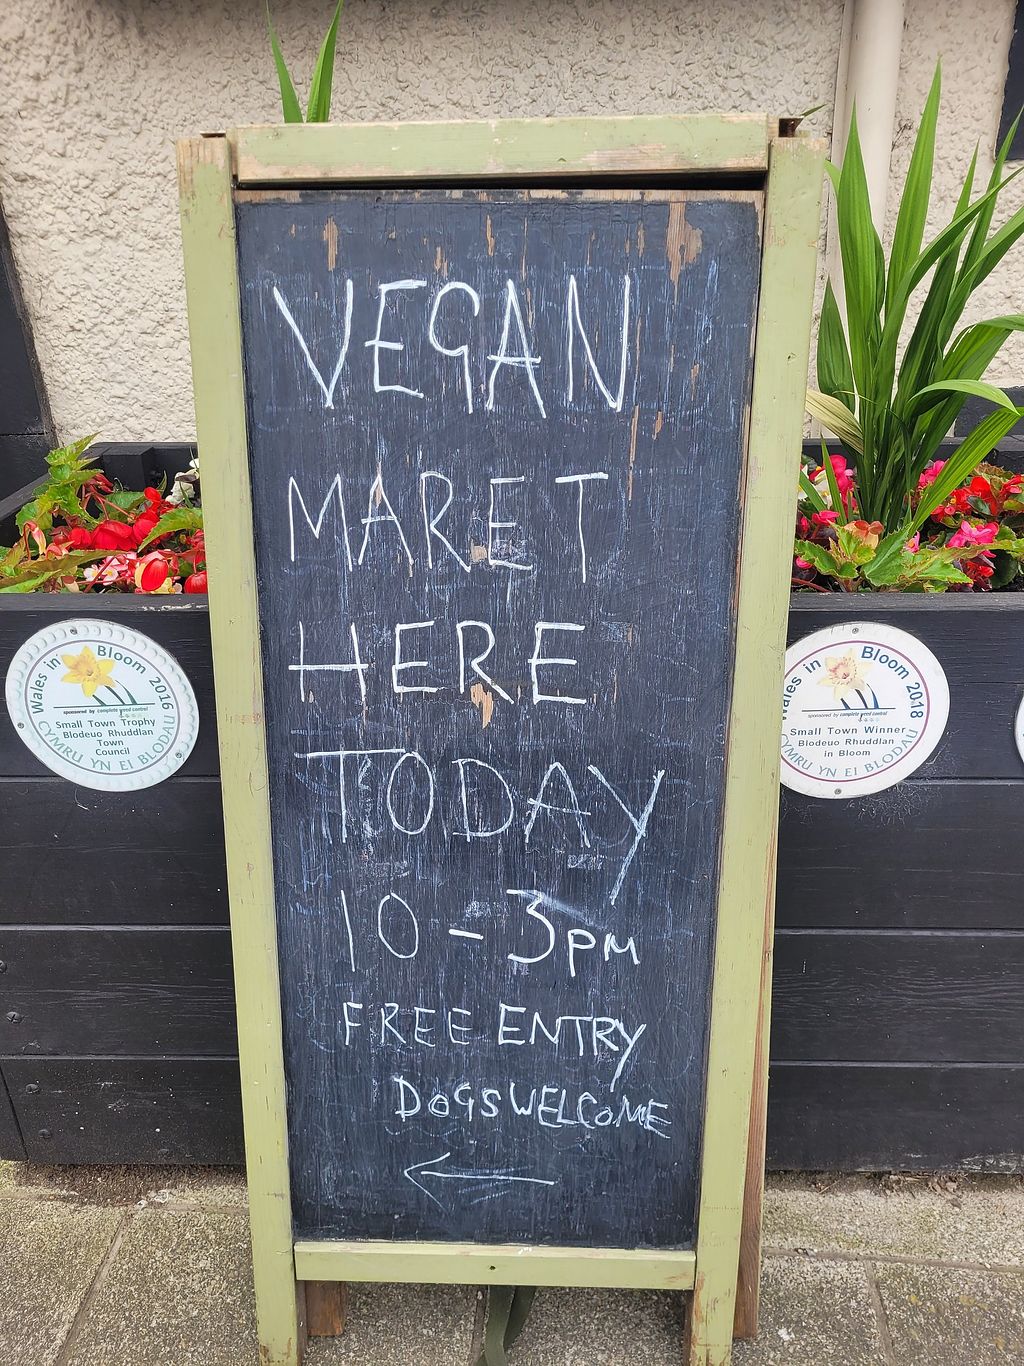 VEGAN
MARET
HERE
TODAY
10 - 3pm
FREE ENTRY
DOGS WELCOME
Wales in Bloom 2016
sponsored by complete weed control
Small Town Trophy
Blodeuo Rhuddlan
Town
Council
CYMRU YN EI BLODAU
Wales in Bloom 2018
sponsored by complete weed control
Small Town Winner
Blodeuo Rhuddlan
in Bloom
CYMRU YN EI BLODAU